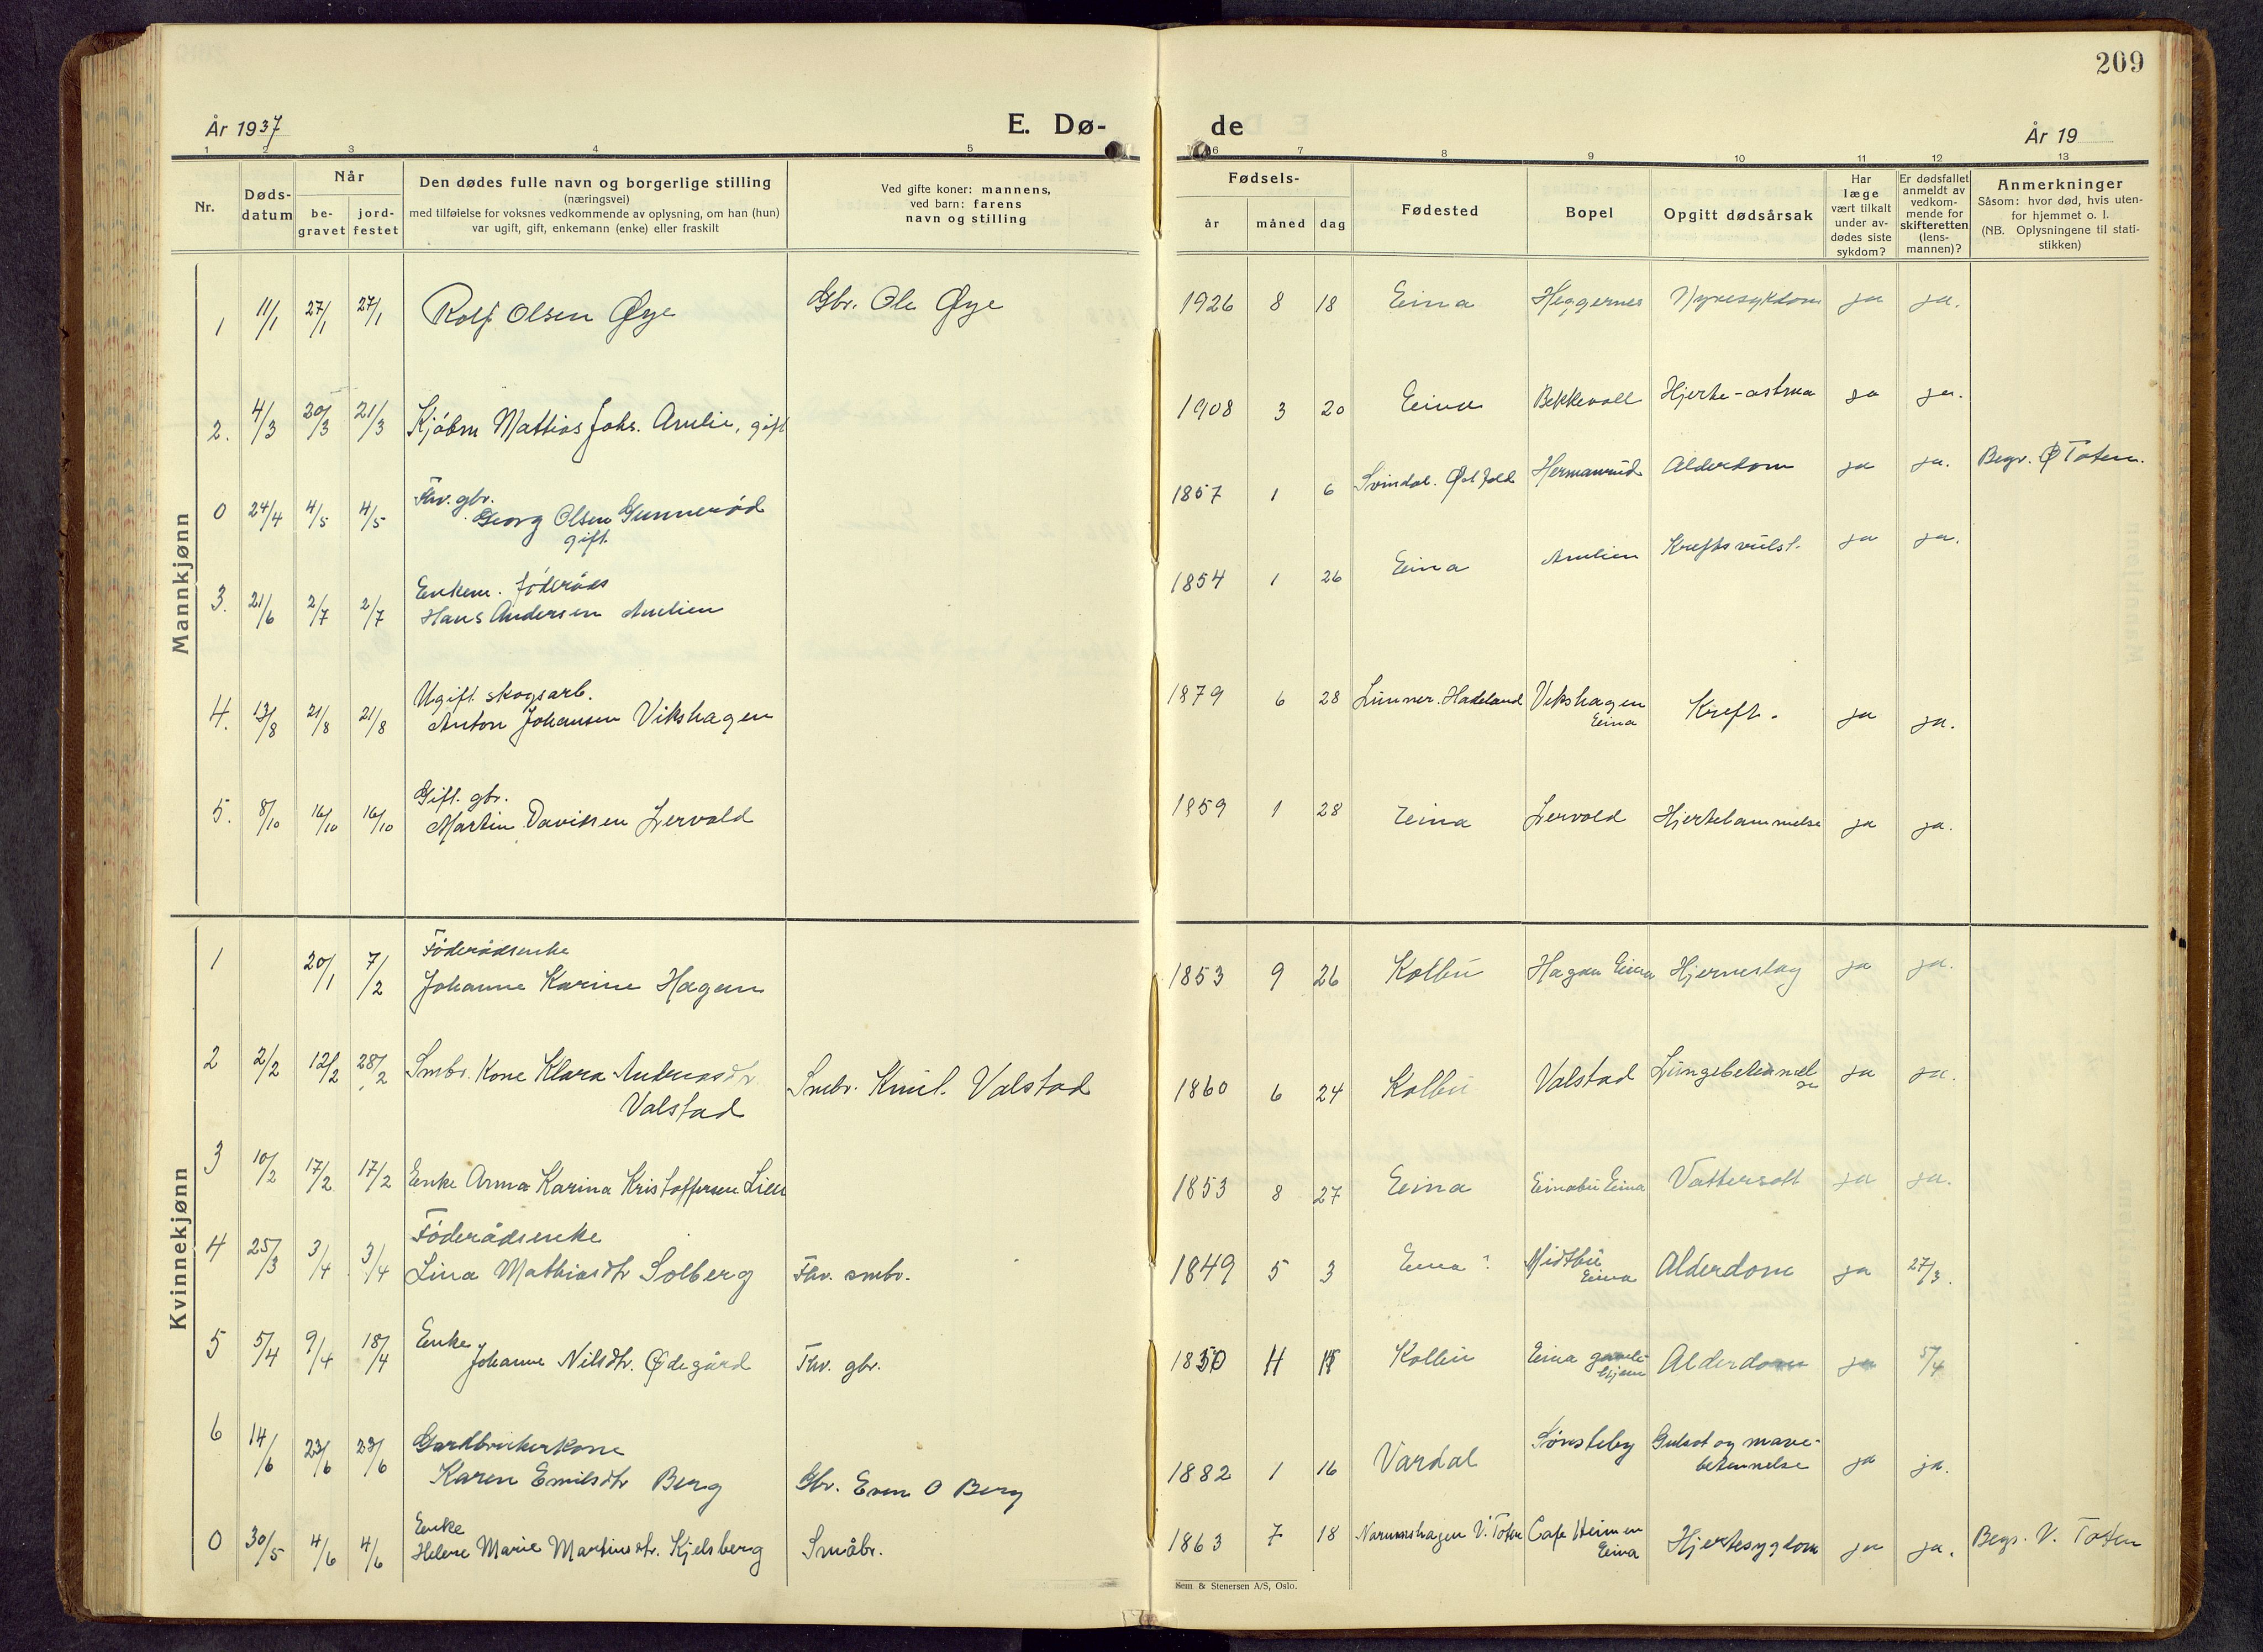 209
År 1937
E. Dø-
de
År 19
1 2 3 4 5 6 7 8 9 10 11 12 13
Nr.
Døds-
datum
Når
be-
gravet
jord-
festet
Den dødes fulle navn og borgerlige stilling
(næringsvei)
med tilføielse for voksnes vedkommende av oplysning, om han (hun)
var ugift, gift, enkemann (enke) eller fraskilt
Ved gifte koner: mannens,
ved barn: farens
navn og stilling
Fødsels-
år måned dag
Fødested
Bopel
Opgitt dødsårsak
Har
læge
vært tilkalt
under av-
dødes siste
sykdom?
Er dødsfallet
anmeldt av
vedkom-
mende for
skifteretten
(lens-
mannen)?
Anmerkninger
Såsom: hvor død, hvis uten-
for hjemmet o. l.
(NB. Oplysningene til stati-
stikken)
Mannkjønn
1 11/1 27/1 27/1 Rolf Olsen Øye Gbr. Ole Øye 1926 8 18 Eina Heggernes Nyresykdom ja ja.
2. 4/3 20/3 21/3 Kjøbm Mattias Johs. Amlie, gift 1908 3 20 Eina Bekkevoll Hjerte-astma ja ja.
0 24/4 4/5 4/5 Fhv. gbr.
Georg Olsen Gunnerød
gift. 1857 1 6 Svindal. Østfold Hermanrud Alderdom ja ja. Begr. Ø Toten.
3. 21/6 2/7 2/7 Enkem. føderåds
Hans Andersen Amlien 1854 1 26 Eina Amlien Kreftsvulst. ja ja.
4. 13/8 21/8 21/8 Ugift skogsarb.
Anton Johansen Vikshagen 1879 6 28 Lunner. Hadeland Vikshagen
Eina Kreft. ja ja.
5. 8/10 16/10 16/10 Gift. gbr.
Martin Davidsen Lervold 1859 1 28 Eina Lervold Hjertelammelse ja ja.
Kvinnekjønn
1 20/1 7/2 Føderådsenke
Johanne Karine Hagen 1853 9 26 Kolbu Hagen Eina Hjerneslag ja ja.
2 2/2 12/2 28/2 Smbr. Kone Klara Andreasdtr.
Valstad Smbr. Knut Valstad 1860 6 24 Kolbu Valstad Lungebetennel
se ja ja.
3 10/2 17/2 17/2 Enke Anna Karina Kristoffersen Lien 1853 8 27 Eina Einabu Eina Vattersott ja ja.
4 25/3 3/4 3/4 Føderådsenke
Lina Mathiasdtr Solberg Fhv. smbr. 1849 5 3 Eina? Midtbu
Eina Alderdom ja 27/3.
5 5/4 9/4 18/4 Enke
Johanne Nilsdtr. Ødegård Fhv. gbr. 1850 4 Kolbu Eina gamle
hjem Alderdom ja 5/4
6 14/6 23/6 23/6 Gardbrukerkone
Karen Emilsdtr Berg Gbr. Even O Berg 1882 1 16 Vardal Sønsteby Gulsot og mave-
betennelse ja ja.
0 30/5 4/6 4/6 Enke
Helene Marie Martinusdtr. Kjelsberg Småbr. 1863 7 18 V. Toten Cafe Heimen
Eina Hjertesygdom ja ja. Begr. V. Toten
Sem & Stenersen A/S, Oslo.